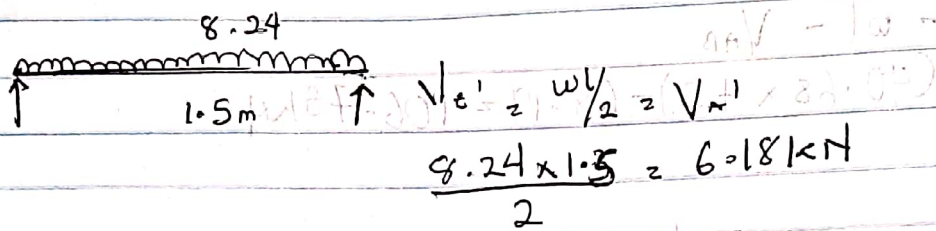 8.24
1.5m
Vt' = wl/2 = VA'
8.24 x 1.5 = 6.18 kN
2